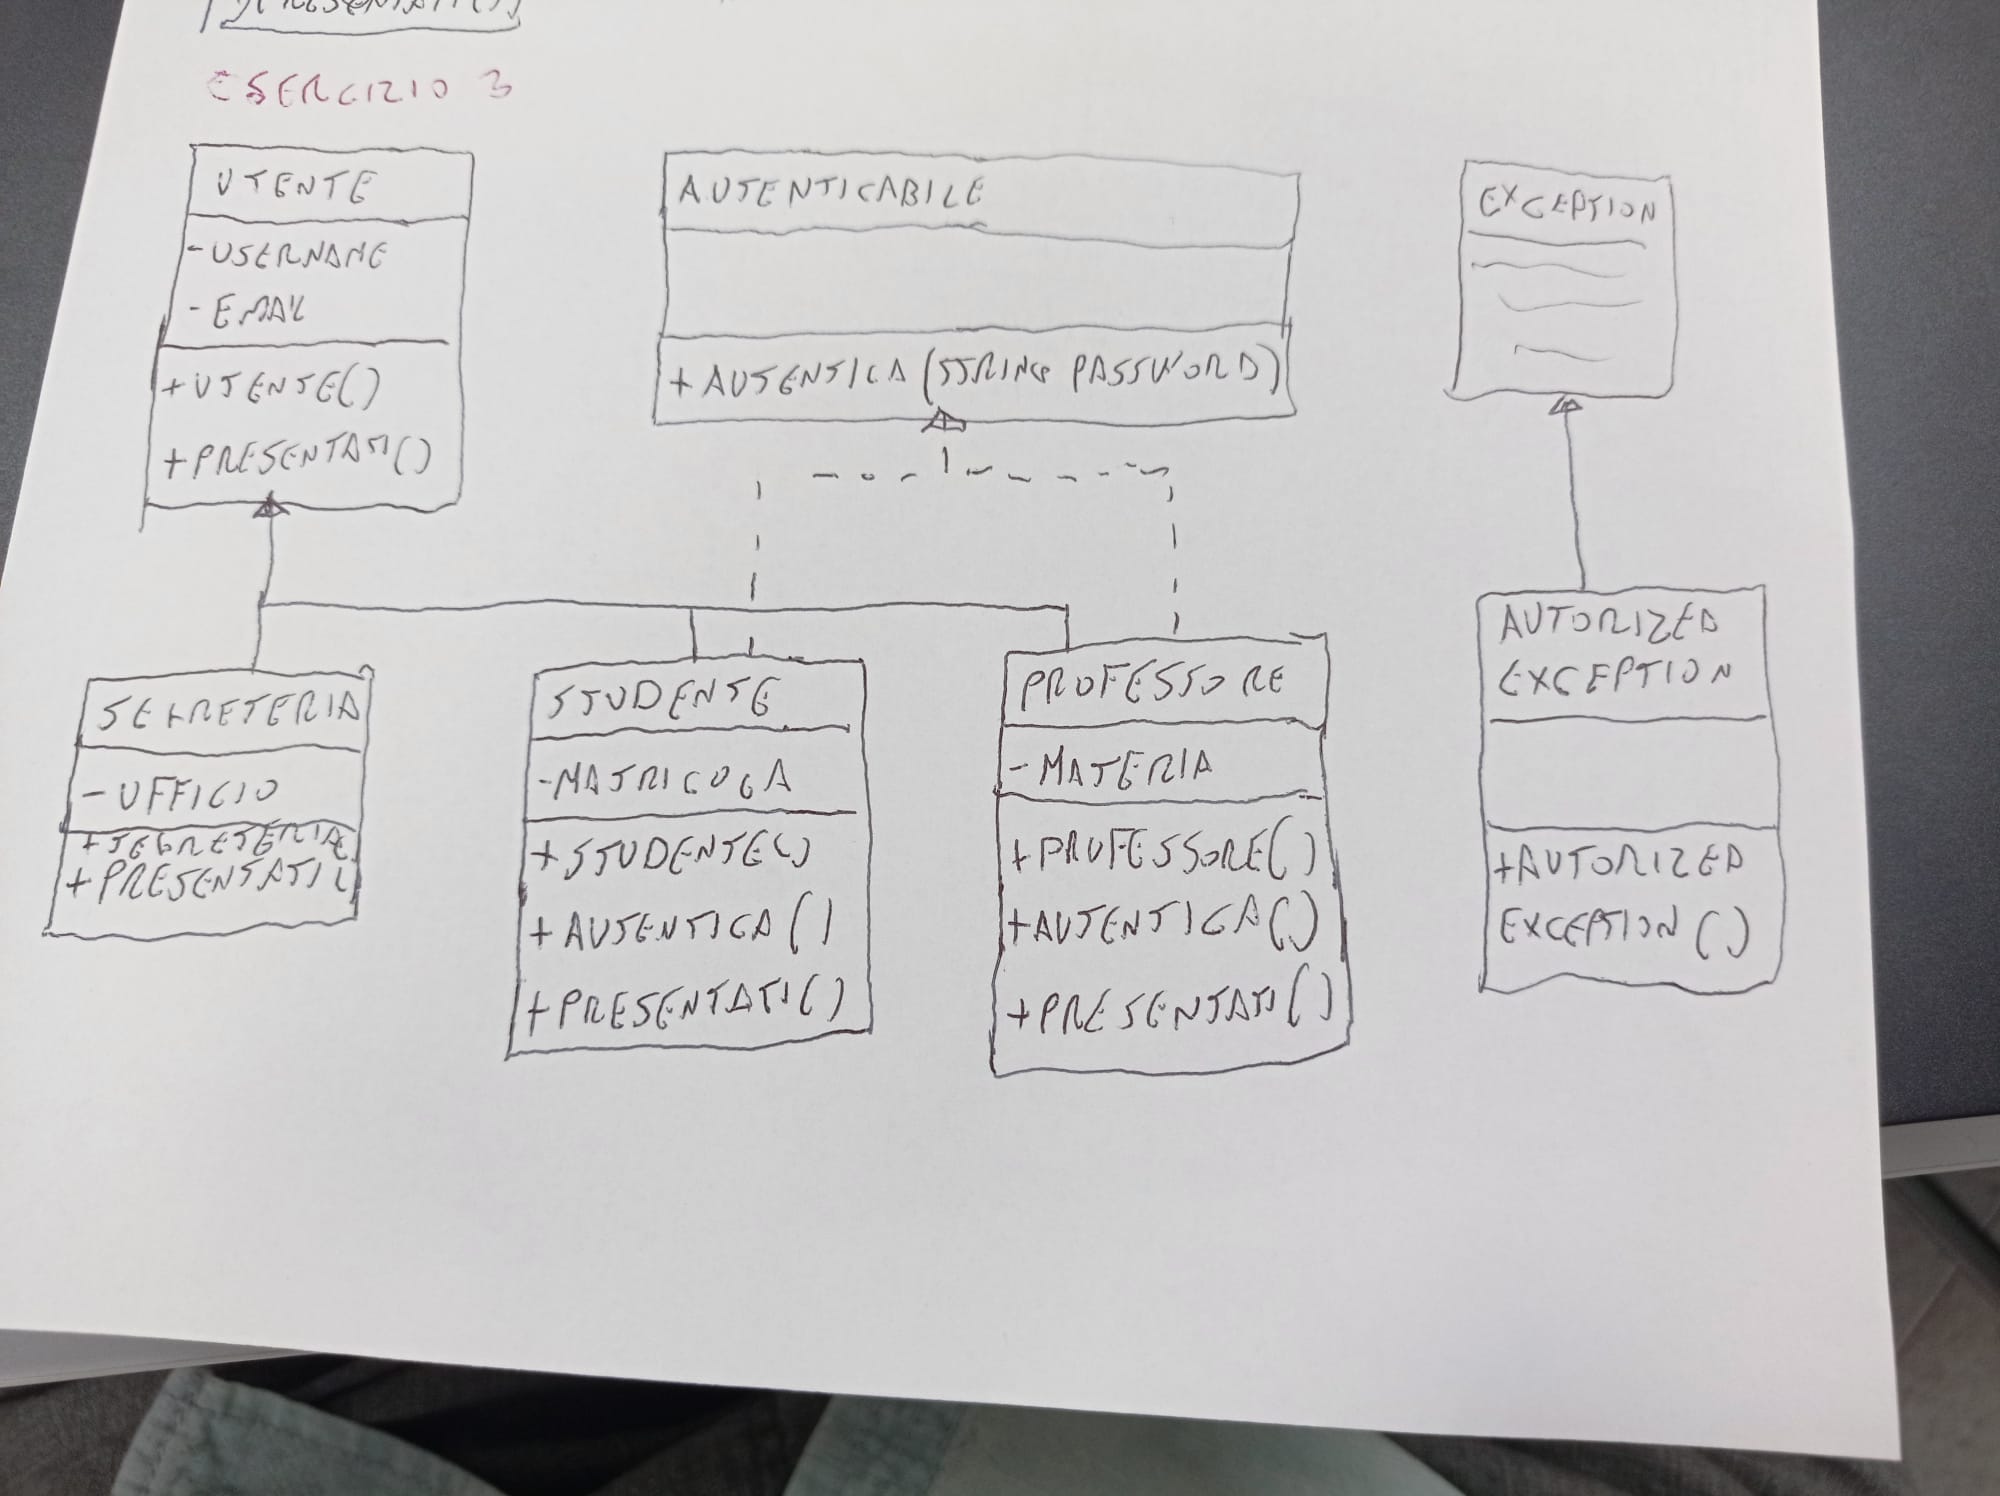 PRESENTATI()
ESERCIZIO 3
UTENTE
- USERNAME
- EMAIL
+ UTENTE()
+ PRESENTATI()
AUTENTICABILE
+ AUTENTICA (STRING PASSWORD)
EXCEPTION
SEGRETERIA
- UFFICIO
+ SEGRETERIA(
+ PRESENTATI(
STUDENTE
- MATRICOLA
+ STUDENTE()
+ AUTENTICA()
+ PRESENTATI()
PROFESSORE
- MATERIA
+ PROFESSORE()
+ AUTENTICA()
+ PRESENTATI()
AUTORIZED
EXCEPTION
+ AUTORIZED
EXCEPTION()